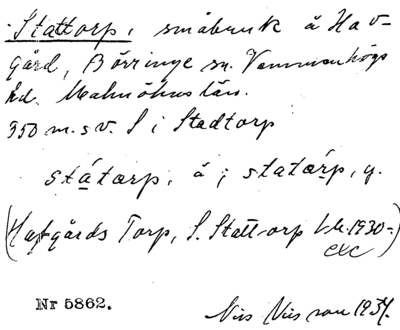 Stattorp, småbruk å Hav-
gård, Börringe sn. Vemmenhögs
hd. Malmöhus län.
350 m. s v. S i Stadtorp
státarp, ä; statárp, y.
(Hafgårds Torp, S. Stattorp 1930-
Nr 5862.
Nils Nilsson 1934.